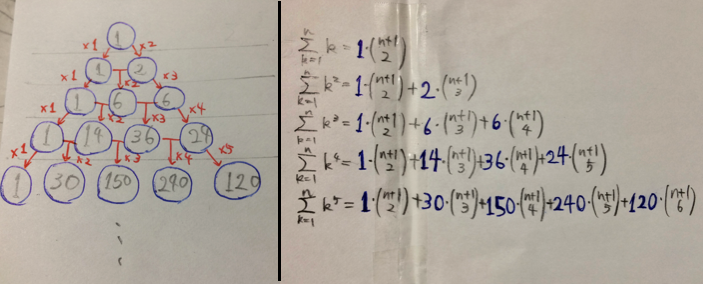 1
×1 ×2
1 2
×1 ×2 ×3
1 6 6
×1 ×2 ×3 ×4
1 14 36 24
×1 ×2 ×3 ×4 ×5
1 30 150 240 120
⋮
\sum_{k=1}^{n} k = 1·\binom{n+1}{2}
\sum_{k=1}^{n} k^2 = 1·\binom{n+1}{2} + 2·\binom{n+1}{3}
\sum_{k=1}^{n} k^3 = 1·\binom{n+1}{2} + 6·\binom{n+1}{3} + 6·\binom{n+1}{4}
\sum_{k=1}^{n} k^4 = 1·\binom{n+1}{2} + 14·\binom{n+1}{3} + 36·\binom{n+1}{4} + 24·\binom{n+1}{5}
\sum_{k=1}^{n} k^5 = 1·\binom{n+1}{2} + 30·\binom{n+1}{3} + 150·\binom{n+1}{4} + 240·\binom{n+1}{5} + 120·\binom{n+1}{6}